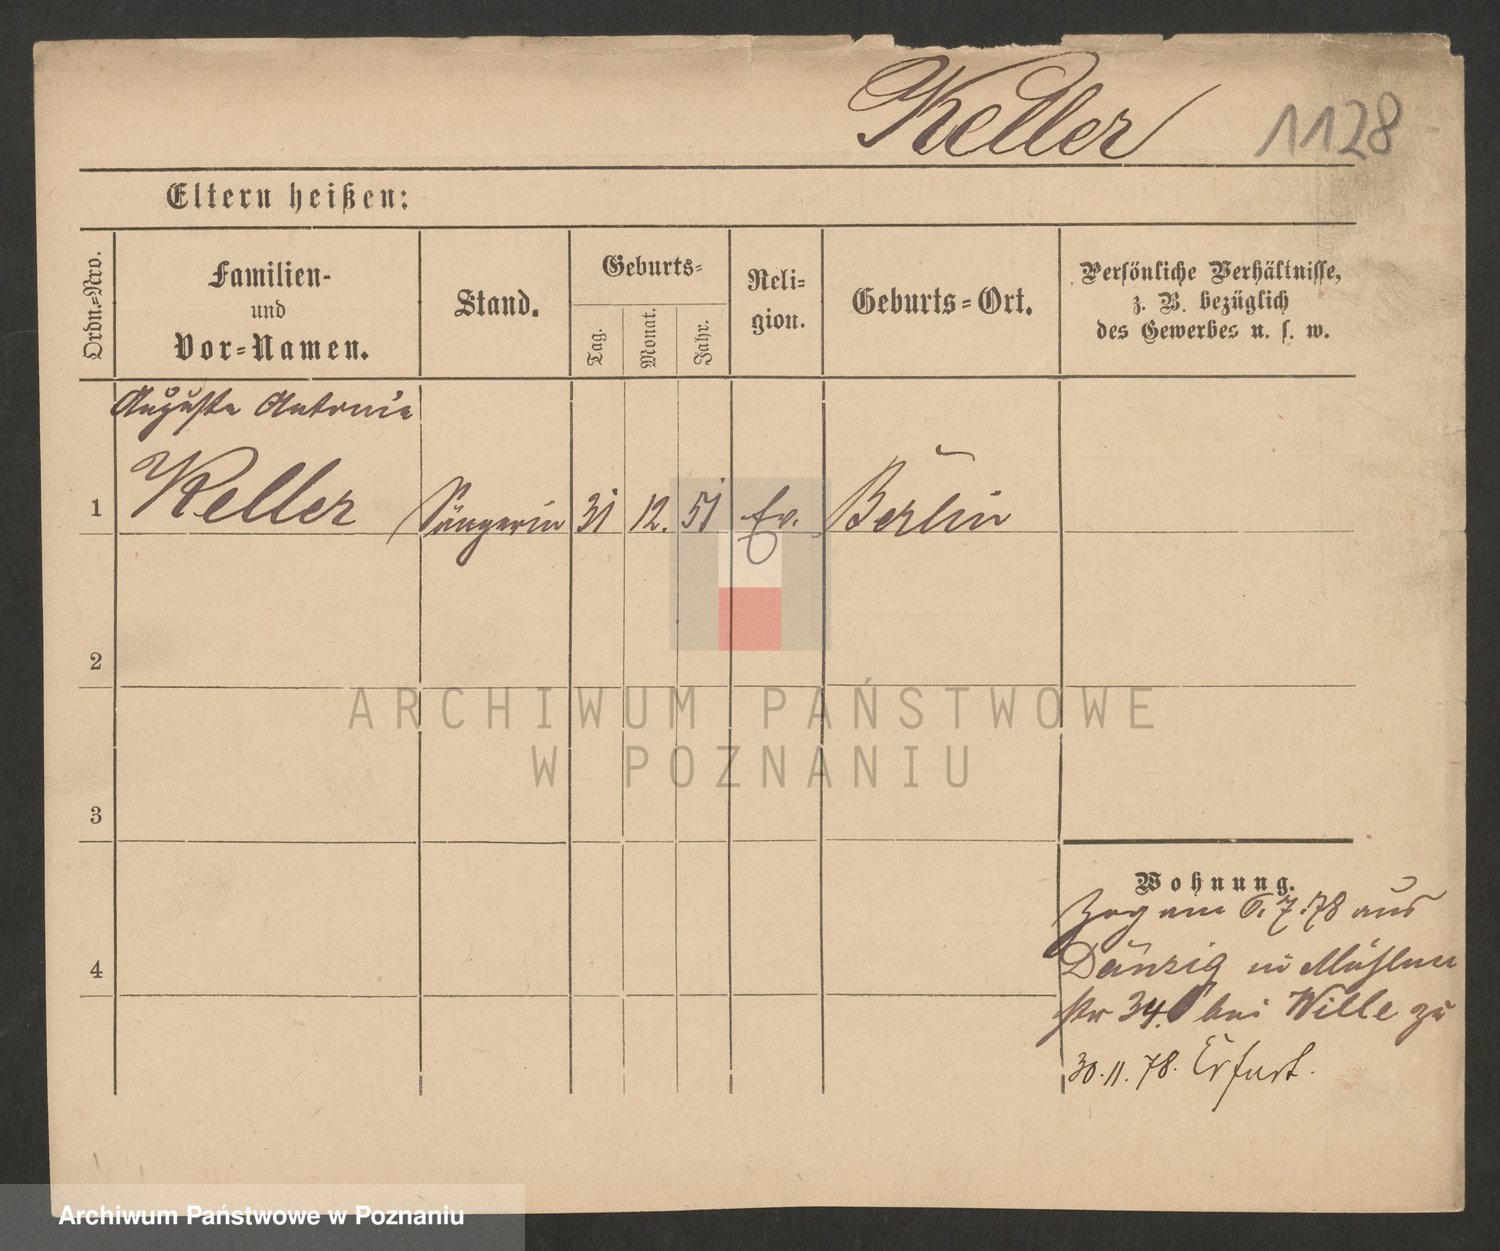 Keller 1128
Eltern heißen:
Ordn.-Nro.
Familien-
und
Vor-Namen.
Stand.
Geburts-
Tag.
Monat.
Jahr.
Reli-
gion.
Geburts-Ort.
Persönliche Verhältnisse,
z. B. bezüglich
des Gewerbes u. s. w.
Auguste Antonie
1 Keller Sängerin 31 12. 51 Ev. Berlin
2
3
4
Wohnung.
Zog am 6.7.78 aus
Danzig in Mühlen
str 34. bei Wille zu
30.11.78. Erfurt.
ARCHIWUM PAŃSTWOWE
W POZNANIU
Archiwum Państwowe w Poznaniu